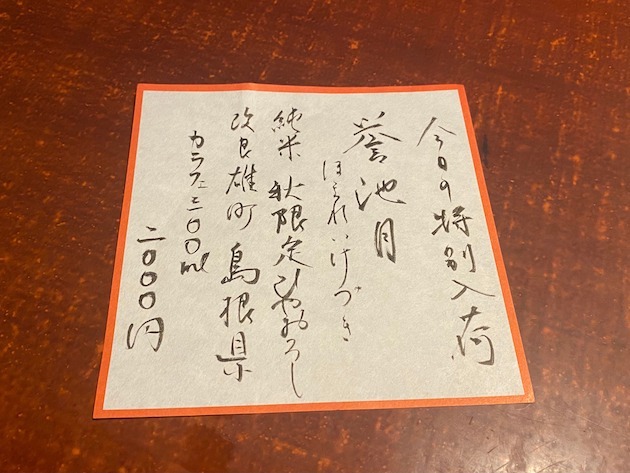 今日の特別入荷
誉池月
ほまれいけづき
純米 秋限定ひやおろし
改良雄町 島根県
カラフェ三〇〇ml
二〇〇〇円